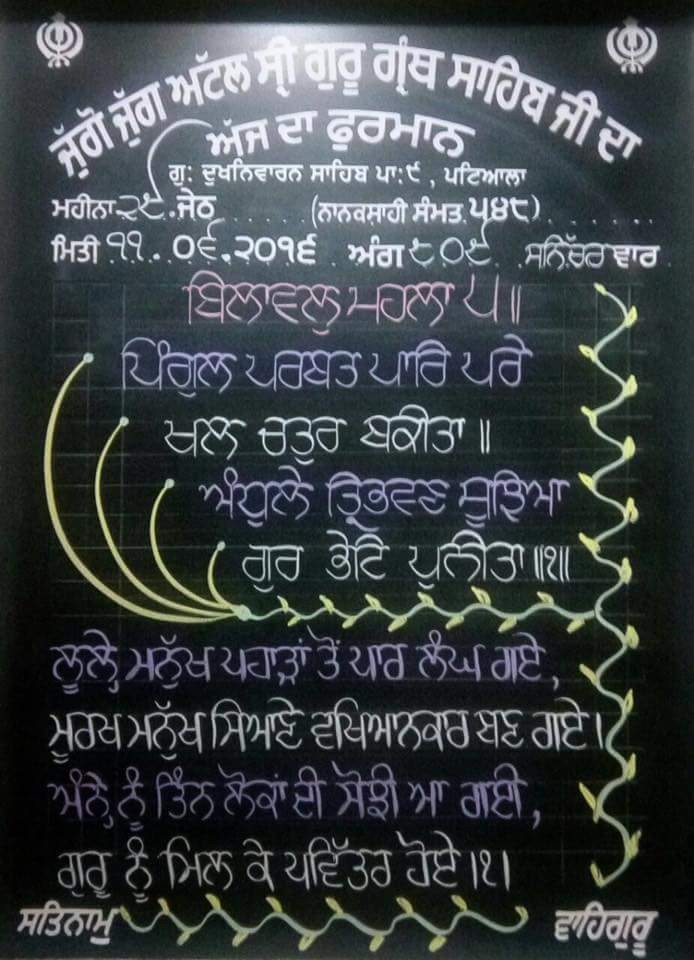 ਜੁੱਗੋ ਜੁੱਗ ਅਟੱਲ ਸ੍ਰੀ ਗੁਰੂ ਗ੍ਰੰਥ ਸਾਹਿਬ ਜੀ ਦਾ
ਅੱਜ ਦਾ ਫੁਰਮਾਨ
ਗੁ: ਦੁਖਨਿਵਾਰਨ ਸਾਹਿਬ ਪਾ:੯, ਪਟਿਆਲਾ
ਮਹੀਨਾ ੨੯ ਜੇਠ (ਨਾਨਕਸ਼ਾਹੀ ਸੰਮਤ ੫੪੮)
ਮਿਤੀ 11.0੬.੨੦੧੬ ਅੰਗ ੮੦੯ ਸਨਿੱਚਰ ਵਾਰ
ਬਿਲਾਵਲੁ ਮਹਲਾ ੫॥
ਪਿੰਗੁਲ ਪਰਬਤ ਪਾਰਿ ਪਰੇ
ਖਲ ਚਤੁਰ ਬਕੀਤਾ॥
ਅੰਧੁਲੇ ਤ੍ਰਿਭਵਣ ਸੂਝਿਆ
ਗੁਰ ਭੇਟਿ ਪੁਨੀਤਾ॥੧॥
ਲੂਲ੍ਹੇ ਮਨੁੱਖ ਪਹਾੜਾਂ ਤੋਂ ਪਾਰ ਲੰਘ ਗਏ,
ਮੂਰਖ ਮਨੁੱਖ ਸਿਆਣੇ ਵਖਿਆਨਕਾਰ ਬਣ ਗਏ।
ਅੰਨ੍ਹੇ ਨੂੰ ਤਿੰਨ ਲੋਕਾਂ ਦੀ ਸੋਝੀ ਆ ਗਈ,
ਗੁਰੂ ਨੂੰ ਮਿਲ ਕੇ ਪਵਿੱਤਰ ਹੋਏ।੧।
ਸਤਿਨਾਮੁ ਵਾਹਿਗੁਰੂ